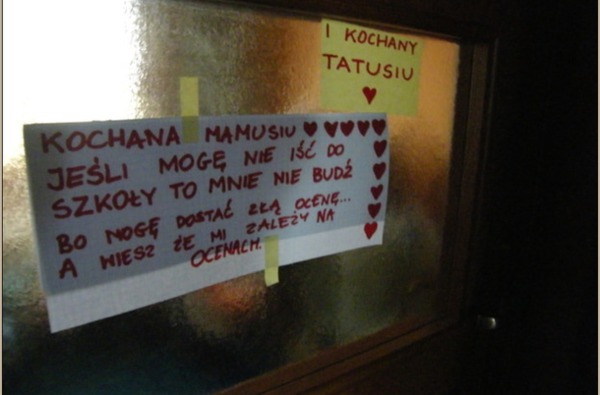 I KOCHANY
TATUSIU
KOCHANA MAMUSIU
JEŚLI MOGĘ NIE IŚĆ DO
SZKOŁY TO MNIE NIE BUDŹ
BO MOGĘ DOSTAĆ ZŁĄ OCENĘ...
A WIESZ ŻE MI ZALEŻY NA
OCENACH.